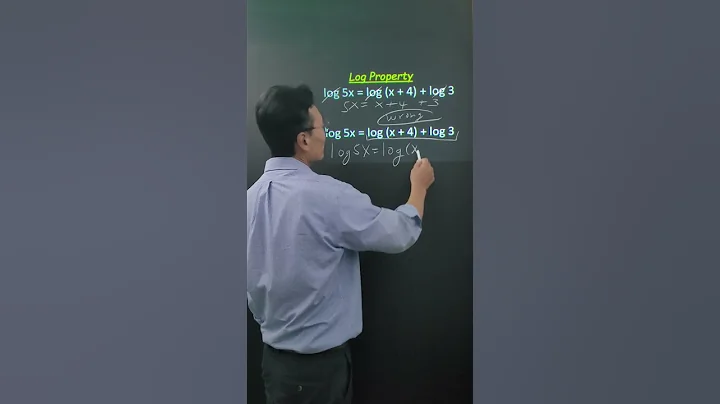 Log Property
log 5x = log (x + 4) + log 3
5x = x+4 +3
wrong
log 5x = log (x + 4) + log 3
log5x=log(x